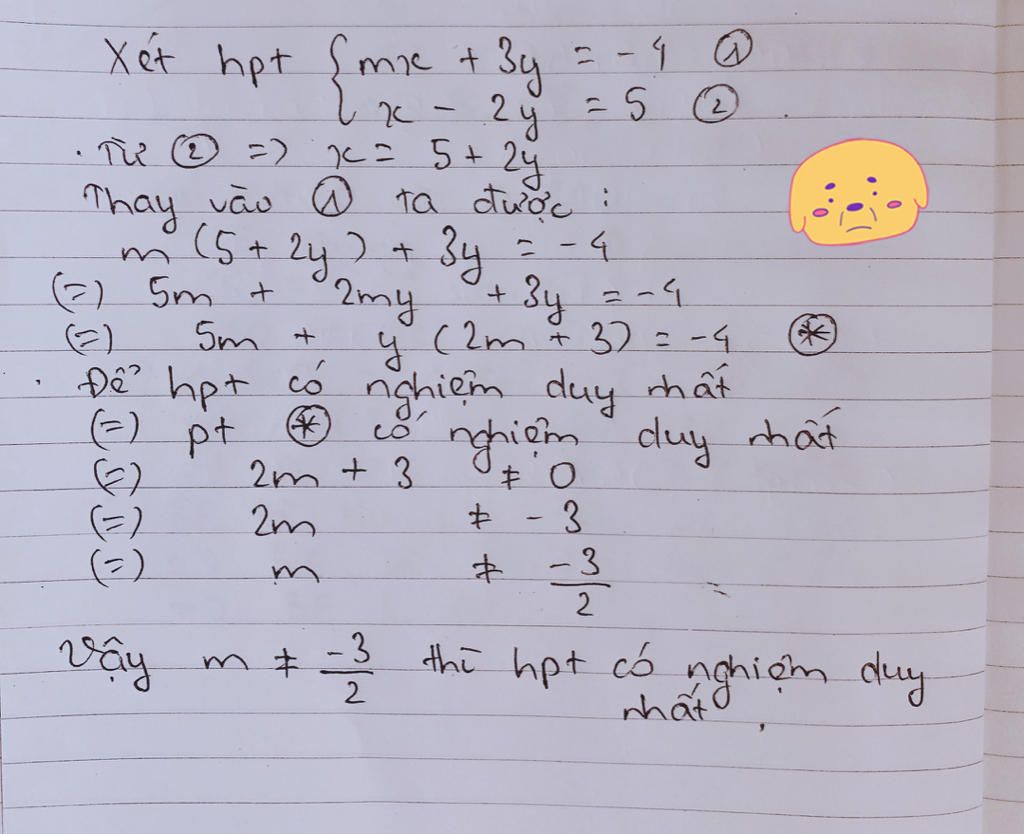 Xét hpt { mx + 3y = -4 ①
x - 2y = 5 ②
. Từ ② => x = 5 + 2y
Thay vào ① ta được :
m (5 + 2y) + 3y = -4
(=) 5m + 2my + 3y = -4
(=) 5m + y (2m + 3) = -4 (*)
. Để hpt có nghiệm duy nhất
(=) pt (*) có nghiệm duy nhất
(=) 2m + 3 ≠ 0
(=) 2m ≠ -3
(=) m ≠ -3/2
Vậy m ≠ -3/2 thì hpt có nghiệm duy
nhất.